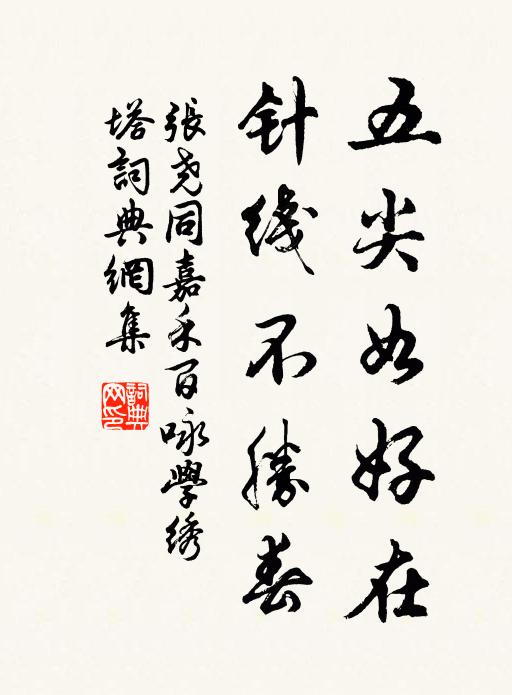 五尖如好在
针线不勝春
張尧同嘉禾百咏學绣
塔詞典網集
詞典
网印